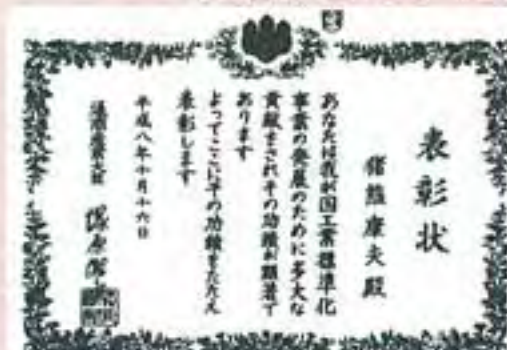 表彰状
猪熊康夫殿
あなたは我が国工業標準化
事業の発展のために多大な
貢献をされその功績が顕著で
あります
よってここにその功績をたたえ
表彰します
平成八年十月十六日
通商産業大臣